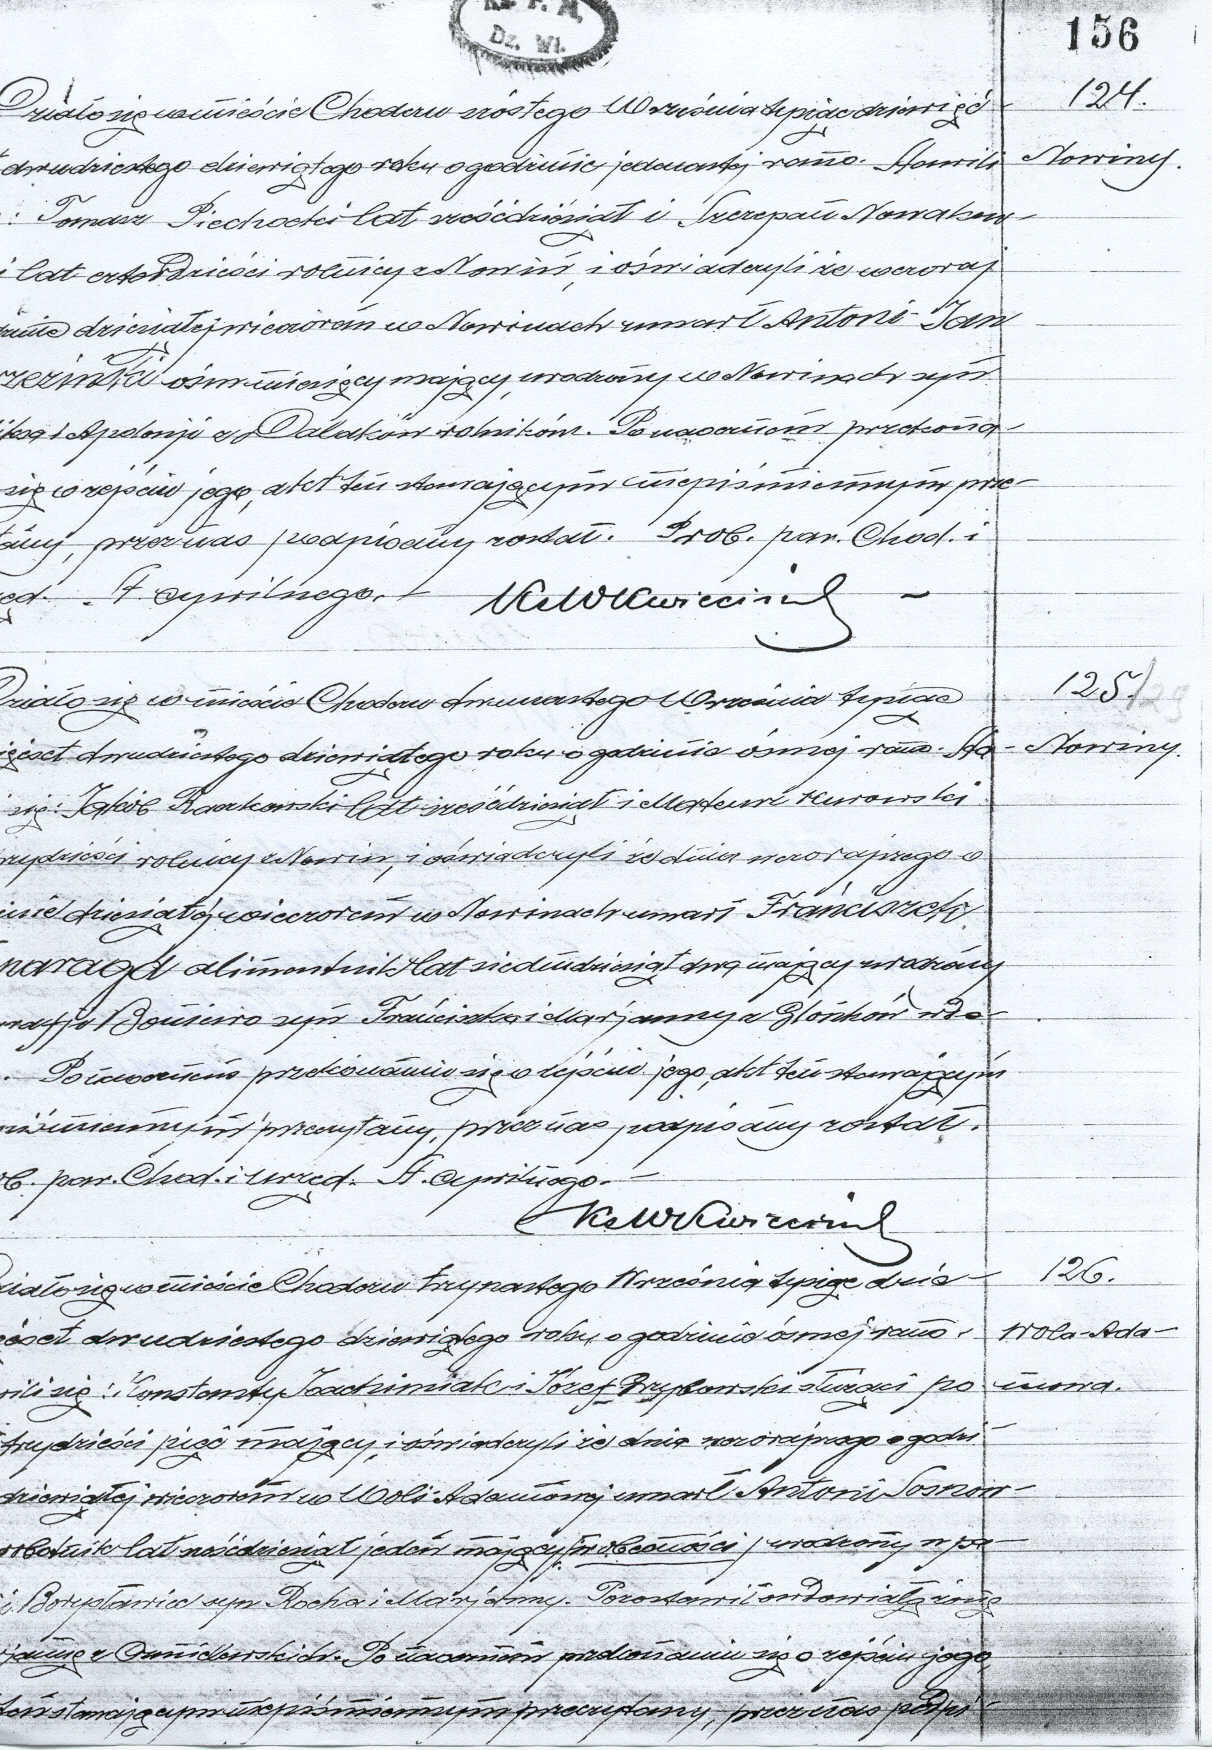 Ks. P. M.
Dz. Wł.
156
124.
Działo się w mieście Chodczu szóstego Września tysiąc dziewięć-
dwudziestego dziewiątego roku o godzinie jedenastej rano. Stawili
Nowiny.
: Tomasz Piechocki lat sześćdziesiąt i Szczepan Nowakow-
i lat czterdzieści rolnicy z Nowin, i oświadczyli że wczoraj
dzinie dziesiątej wieczorem w Nowinach umarł Antoni Jan
rzeziński ośm miesięcy mający, urodzony w Nowinach syn
i Apolonji z Dalaków rolników. Po naocznem przekona-
się o zejściu jego, akt ten stawającym niepiśmiennym prze-
tany, przez nas podpisany został. Prob. par. Chod. i
ęd. St. cywilnego. -
Ks W Kwieciński -
125/29
Działo się w mieście Chodczu dwunastego Września tysiąc
ięćset dwudziestego dziewiątego roku o godzinie ósmej rano. Sta-
Nowiny.
się: Jakób Raszkowski lat sześćdziesiąt i Mateusz Kurowski
rzydzieści rolnicy z Nowin, i oświadczyli że dnia wczorajszego o
inie dziesiątej wieczorem w Nowinach umarł Franciszek
maragd alimentnik lat siedmdziesiąt dwa mający urodzony
rafji Boniewo syn Franciszka i Marjanny z Głońków wdo-
. Po naocznem przekonaniu się o zejściu jego, akt ten stawającym
iśmiennym przeczytany, przez nas podpisany został.
ob. par. Chod. i urzęd. St. cywilnego. -
Ks W Kwieciński
126.
Działo się w mieście Chodczu trzynastego Września tysiąc dzie-
ęćset dwudziestego dziewiątego roku o godzinie ósmej rano.
Wola-Ada-
wili się: Konstanty Joachimiak i Józef Przybowski słudzy po
mowa.
trzydzieści pięć mający, i oświadczyli że dnia wczorajszego o godzi
dziewiątej wieczorem w Woli-Adamowej umarł Antoni Sosnow-
robotnik lat sześćdziesiąt jeden mający urodzony w pa-
i Borysławice syn Rocha i Marjanny. Pozostawił owdowiałą żonę
rjannę z Po naocznem przekonaniu się o zejściu jego,
ten stawającym niepiśmiennym przeczytany, przez nas podpi-